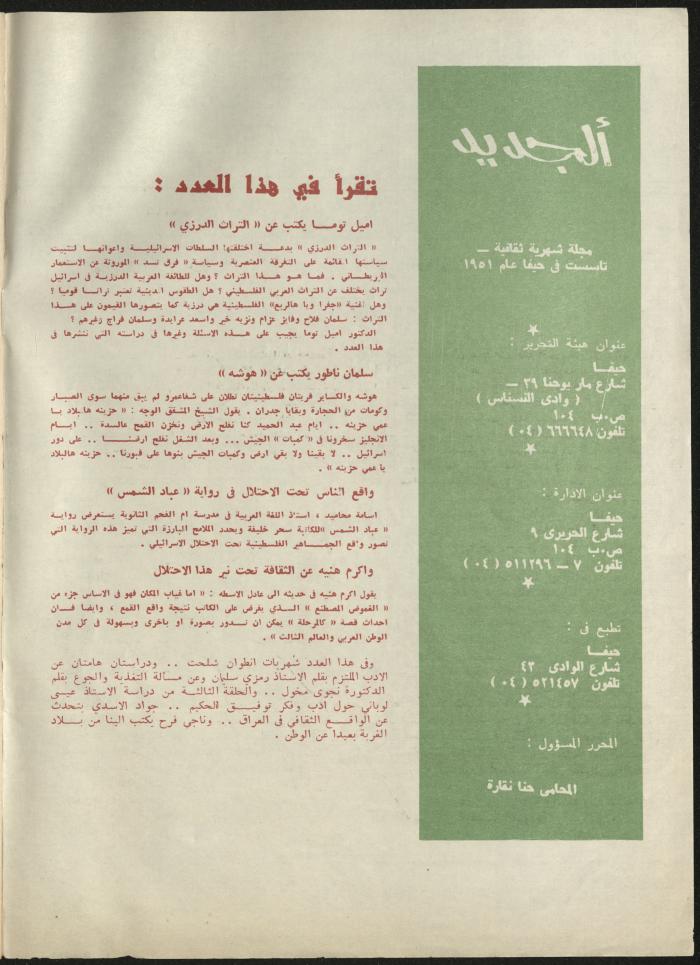 ألجديد
مجلة شهرية ثقافية —
تأسست في حيفا عام ١٩٥١
عنوان هيئة التحرير :
حيفا
شارع مار يوحنا ٣٩ —
( وادى النسناس )
ص.ب ١٠٤
تلفون ٦٦٦٦٤٨ (٠٤)
عنوان الادارة :
حيفا
شارع الحريرى ٩
ص.ب ١٠٤
تلفون ٧ — ٥١١٢٩٦ (٠٤)
تطبع في :
حيفا
شارع الوادى ٤٣
تلفون ٥٢١٤٥٧ (٠٤)
المحرر المسؤول :
المحامى حنا نقارة
تقرأ في هذا العدد :
اميل توما يكتب عن « التراث الدرزي »
« التراث الدرزي » بدعة اختلقتها السلطات الاسرائيلية واعوانها لتثبيت
سياستها القائمة على التفرقة العنصرية وسياسة « فرق تسد » الموروثة عن الاستعمار
البريطاني . فما هو هذا التراث ؟ وهل للطائفة العربية الدرزية في اسرائيل
تراث يختلف عن التراث العربي الفلسطيني ؟ هل الطقوس الدينية تعتبر تراثا قوميا ؟
وهل اغنية «جفرا ويا هالربع» الفلسطينية هي درزية كما يتصورها القيمون على هذا
التراث : سلمان فلاح وفايز عزام ونزيه خير واسعد عرايدة وسلمان فراج وغيرهم ؟
الدكتور اميل توما يجيب على هذه الاسئلة وغيرها في دراسته التي ننشرها في
هذا العدد .
سلمان ناطور يكتب عن « هوشه »
هوشه والكساير قريتان فلسطينيتان تطلان على شفاعمرو لم يبق منهما سوى الصبار
وكومات من الحجارة وبقايا جدران . يقول الشيخ المشقق الوجه : « حزينه هالبلاد يا
عمي حزينه .. ايام عبد الحميد كنا نفلح الارض ونخزن القمح عالسدة .. ايام
الانجليز سخرونا في « كمبات » الجيش ... وبعد الشغل نفلح ارضنا .. على دور
اسرائيل .. لا بقينا ولا بقي ارض وكمبات الجيش بنوها على قبورنا .. حزينه هالبلاد
يا عمي حزينه » .
واقع الناس تحت الاحتلال في رواية « عباد الشمس »
اسامة محاميد ، استاذ اللغة العربية في مدرسة ام الفحم الثانوية يستعرض رواية
« عباد الشمس »للكاتبة سحر خليفة ويحدد الملامح البارزة التي تميز هذه الرواية التي
تصور واقع الجماهير الفلسطينية تحت الاحتلال الاسرائيلي .
واكرم هنيه عن الثقافة تحت نير هذا الاحتلال
يقول اكرم هنيه في حديثه الى عادل الاسطه : « اما غياب المكان فهو في الاساس جزء من
« الغموض المصطنع » الذي يفرض على الكاتب نتيجة واقع القمع ، وايضا فان
احداث قصة « كالمرحلة » يمكن ان تدور بصورة او باخرى وبسهولة في كل مدن
الوطن العربي والعالم الثالث » .
وفي هذا العدد شهريات انطوان شلحت .. ودراستان هامتان عن
الادب الملتزم بقلم الاستاذ رمزي سليمان وعن مسألة التغذية والجوع بقلم
الدكتورة نجوى مخول .. والحلقة الثالثة من دراسة الاستاذ عيسى
لوباني حول ادب وفكر توفيق الحكيم .. جواد الاسدي يتحدث
عن الواقع الثقافي في العراق .. وناجي فرح يكتب الينا من بلاد
الغربة بعيدا عن الوطن .